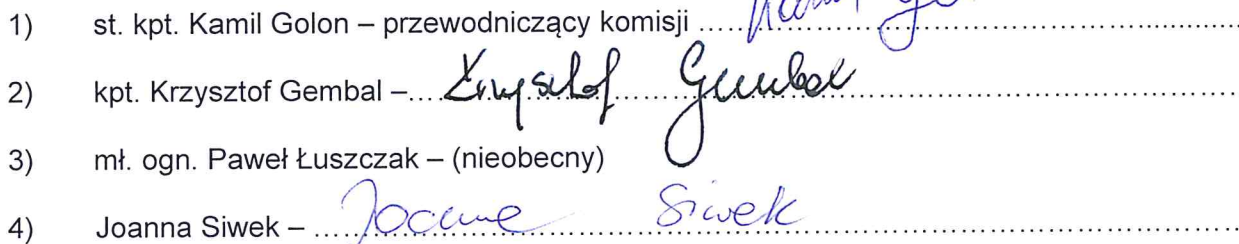 1) st. kpt. Kamil Golon – przewodniczący komisji ..... Kamil ..............................
2) kpt. Krzysztof Gembal –.... Krzysztof Gembal ..............................
3) mł. ogn. Paweł Łuszczak – (nieobecny)
4) Joanna Siwek – ..... Joanna Siwek ..............................